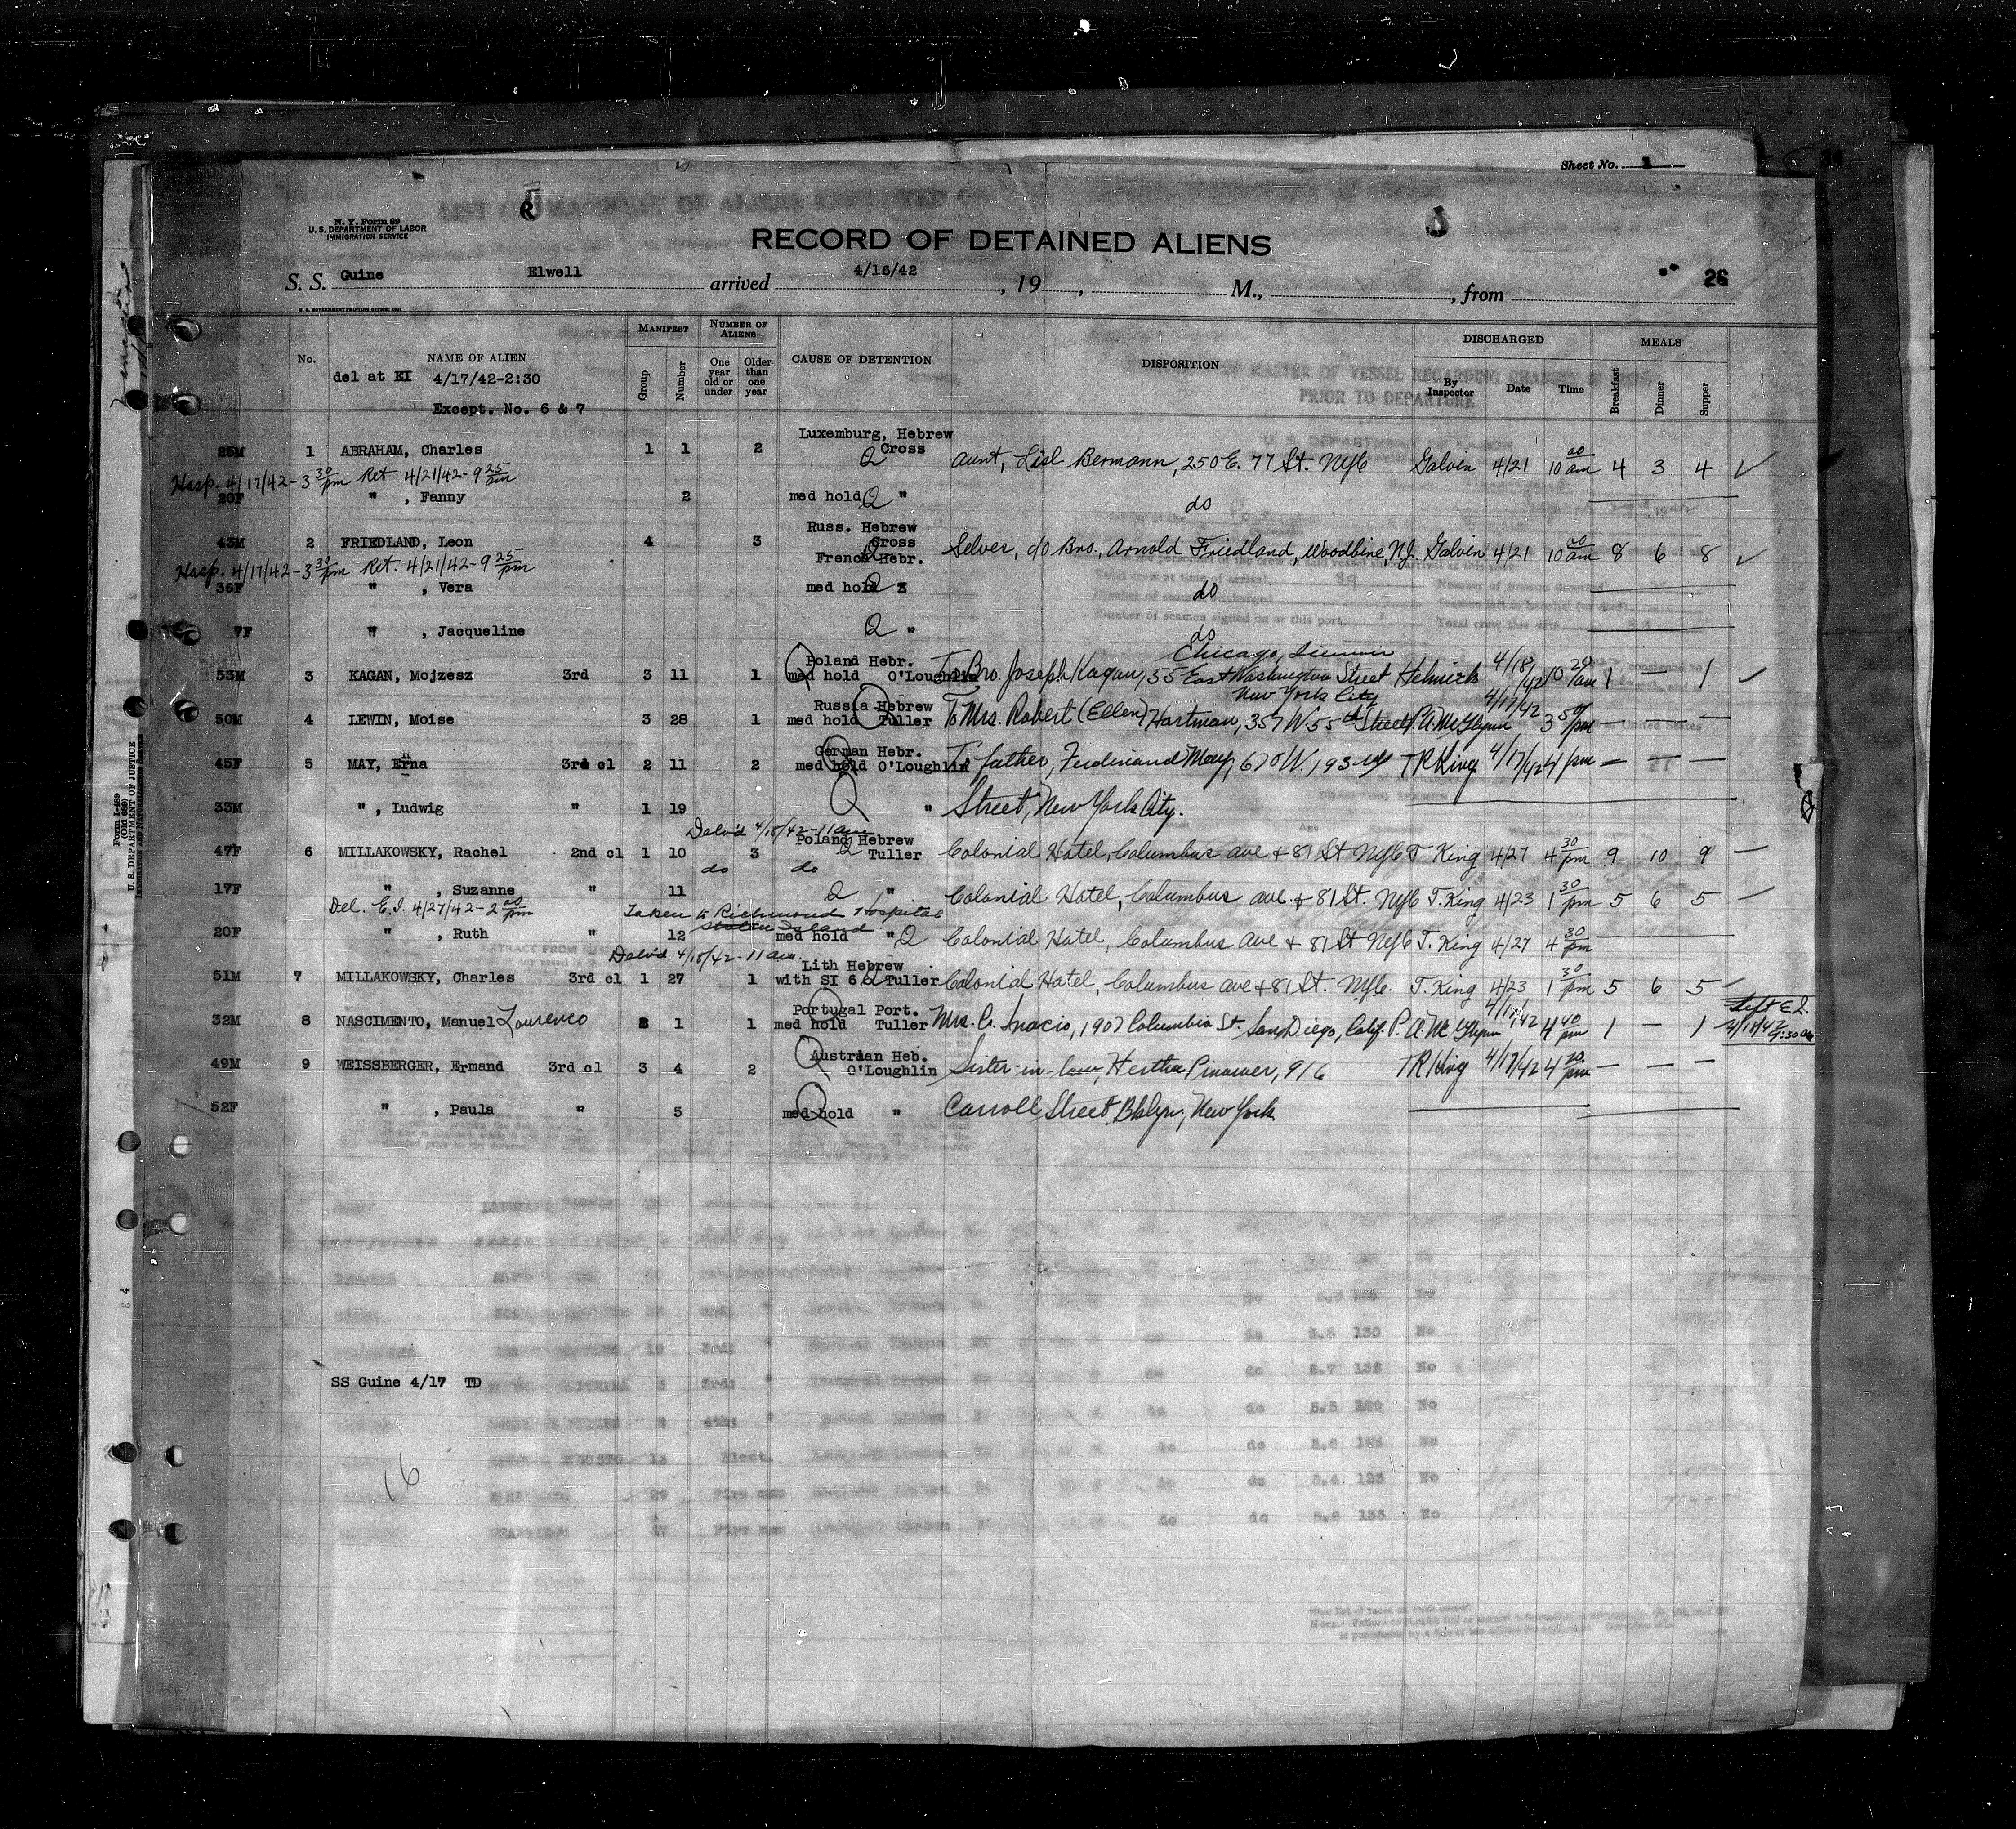 Sheet No. 1
N. Y. Form 89
U. S. DEPARTMENT OF LABOR
IMMIGRATION SERVICE
RECORD OF DETAINED ALIENS
S. S. Guine Elwell arrived 4/16/42, 19 , M., , from 26
U. S. GOVERNMENT PRINTING OFFICE
No. NAME OF ALIEN MANIFEST Group Number NUMBER OF ALIENS One year old or under Older than one year CAUSE OF DETENTION DISPOSITION DISCHARGED By Inspector Date Time MEALS Breakfast Dinner Supper
del at EI 4/17/42-2:30
Except. No. 6 & 7
PRIOR TO DEPARTURE
Luxemburg, Hebrew
25M 1 ABRAHAM, Charles 1 1 2 Cross Aunt, Lisl Bermann, 250 E. 77 St. NYC Galvin 4/21 10 00 am 4 3 4
Hosp. 4/17/42-3 30 pm Ret 4/21/42-9 25 am
20F " , Fanny 2 med hold " do
Russ. Hebrew
43M 2 FRIEDLAND, Leon 4 3 Cross Selver, c/o Bro., Arnold Friedland, Woodbine, N.J. Galvin 4/21 10 00 am 8 6 8
French Hebr.
Hosp. 4/17/42-3 30 pm Ret. 4/21/42-9 25 pm
36F " , Vera med hold do
7F " , Jacqueline " do
Chicago, Illinois
Poland Hebr.
53M 3 KAGAN, Mojzesz 3rd 3 11 1 med hold O'Loughlin To Bro. Joseph Kagan, 55 East Washington Street Helmick 4/18/42 10 20 am 1 — 1
New York City
Russia Hebrew
50M 4 LEWIN, Moise 3 28 1 med hold Tuller To Mrs. Robert (Ellen) Hartman, 357 W. 55th Street P. A. McGlynn 4/17/42 3 50 pm — — —
German Hebr.
45F 5 MAY, Erna 3rd cl 2 11 2 med hold O'Loughlin To father, Ferdinand May, 670 W. 193rd TR King 4/17/42 4 pm — — —
33M " , Ludwig " 1 19 " Street, New York City.
Delv'd 4/18/42-11 am
Poland Hebrew
47F 6 MILLAKOWSKY, Rachel 2nd cl 1 10 3 Tuller Colonial Hotel, Columbus ave + 81 St NYC T. King 4/27 4 30 pm 9 10 9
do do
17F " , Suzanne " 11 " Colonial Hotel, Columbus ave. + 81 St. NYC T. King 4/23 1 30 pm 5 6 5
Del. E.I. 4/27/42-2 00 pm Taken to Richmond Hospital
Staten Island
20F " , Ruth " 12 med hold " Colonial Hotel, Columbus Ave + 81 St NYC T. King 4/27 4 30 pm
Delv'd 4/18/42-11 am.
Lith Hebrew
51M 7 MILLAKOWSKY, Charles 3rd cl 1 27 1 with SI 6 Tuller Colonial Hotel, Columbus ave + 81 St. NYC. T. King 4/23 1 30 pm 5 6 5
Portugal Port.
32M 8 NASCIMENTO, Manuel Lourenco 1 1 med hold Tuller Mrs. C. Inacio, 1907 Columbia St. San Diego, Calif. P. A. McGlynn 4/17/42 4 40 pm 1 — 1
Left E.I.
4/18/42
9:30 am
Austrian Heb.
49M 9 WEISSBERGER, Ermand 3rd cl 3 4 2 O'Loughlin Sister-in-law, Hertha Pinower, 916 TR King 4/17/42 4 20 pm — — —
52F " , Paula " 5 med hold " Carroll Street Bklyn, New York
SS Guine 4/17 TD
16
Form I-489
(Old 689)
U. S. DEPARTMENT OF JUSTICE